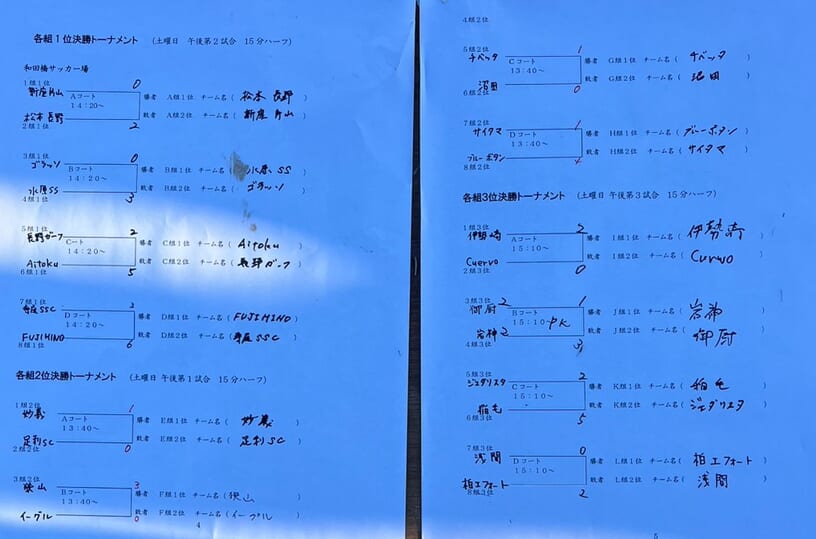 各組1位決勝トーナメント (土曜日 午後第2試合 15分ハーフ)
和田橋サッカー場
1組1位 0
新座片山 Aコート 勝者 A組1位 チーム名( 松本 長野 )
14:20～ 敗者 A組2位 チーム名( 新座 片山 )
松本 長野
2組1位 2
3組1位 0
ゴラッソ Bコート 勝者 B組1位 チーム名( 水原 SS )
14:20～ 敗者 B組2位 チーム名( ゴラッソ )
水原SS
4組1位 3
5組1位 2
長野ガーフ Cコート 勝者 C組1位 チーム名( Aitoku )
14:20～ 敗者 C組2位 チーム名( 長野ガーフ )
Aitoku
6組1位 5
7組1位 3
SSC Dコート 勝者 D組1位 チーム名( FUJIMINO )
14:20～ 敗者 D組2位 チーム名( SSC )
FUJIMINO
8組1位 6
各組2位決勝トーナメント (土曜日 午後第1試合 15分ハーフ)
1組2位 1
妙義 Aコート 勝者 E組1位 チーム名( 妙義 )
13:40～ 敗者 E組2位 チーム名( 足利SC )
足利SC
2組2位 0
3組2位 3
狭山 Bコート 勝者 F組1位 チーム名( 狭山 )
13:40～ 敗者 F組2位 チーム名( イーグル )
イーグル 0
4
4組2位
5組2位 1
チベッタ Cコート 勝者 G組1位 チーム名( チベッタ )
13:40～ 敗者 G組2位 チーム名( 沼田 )
沼田
6組2位 0
7組2位 1
サイタマ Dコート 勝者 H組1位 チーム名( ブルーボタン )
13:40～ 敗者 H組2位 チーム名( サイタマ )
ブルーボタン
8組2位
各組3位決勝トーナメント (土曜日 午後第3試合 15分ハーフ)
1組3位 2
伊勢崎 Aコート 勝者 I組1位 チーム名( 伊勢崎 )
15:10～ 敗者 I組2位 チーム名( Cuervo )
Cuervo
2組3位 0
3組3位 2 1
御厨 Bコート 勝者 J組1位 チーム名( 岩神 )
15:10～ PK 敗者 J組2位 チーム名( 御厨 )
岩神 2
4組3位 3
5組3位 2
ジェダリスタ Cコート 勝者 K組1位 チーム名( 稲毛 )
15:10～ 敗者 K組2位 チーム名( ジェダリスタ )
稲毛
6組3位 5
7組3位 0
浅間 Dコート 勝者 L組1位 チーム名( 柏エフォート )
15:10～ 敗者 L組2位 チーム名( 浅間 )
柏エフォート
8組3位 2
5